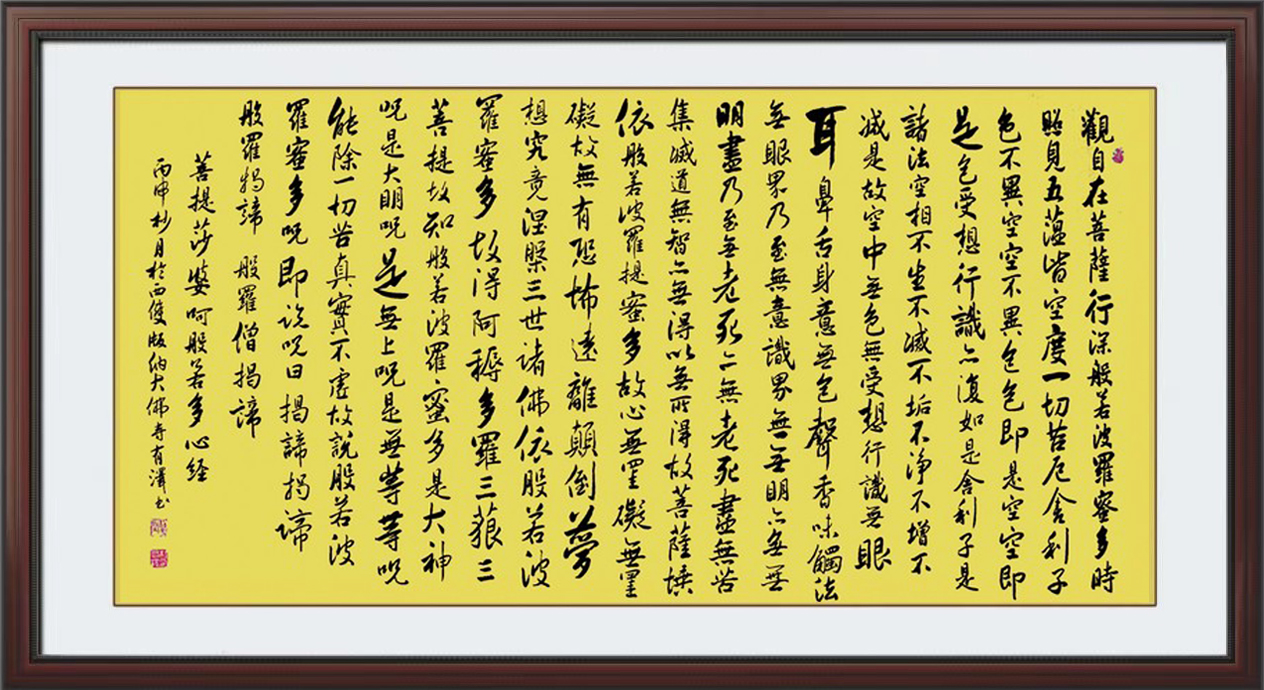 觀自在菩薩行深般若波羅蜜多時
照見五蘊皆空度一切苦厄舍利子
色不異空空不異色色即是空空即
是色受想行識亦復如是舍利子是
諸法空相不生不滅不垢不淨不增不
減是故空中無色無受想行識無眼
耳鼻舌身意無色聲香味觸法
無眼界乃至無意識界無無明亦無無
明盡乃至無老死亦無老死盡無苦
集滅道無智亦無得以無所得故菩薩埵
依般若波羅提蜜多故心無罣礙無罣
礙故無有恐怖遠離顛倒夢
想究竟涅槃三世諸佛依般若波
羅蜜多故得阿耨多羅三藐三
菩提故知般若波羅蜜多是大神
呪是大明呪是無上呪是無等等呪
能除一切苦真實不虛故說般若波
羅蜜多呪即說呪曰揭諦揭諦
般羅揭諦 般羅僧揭諦
菩提莎婆呵般若多心经
丙申杪月於西雙版納大佛寺有澤书